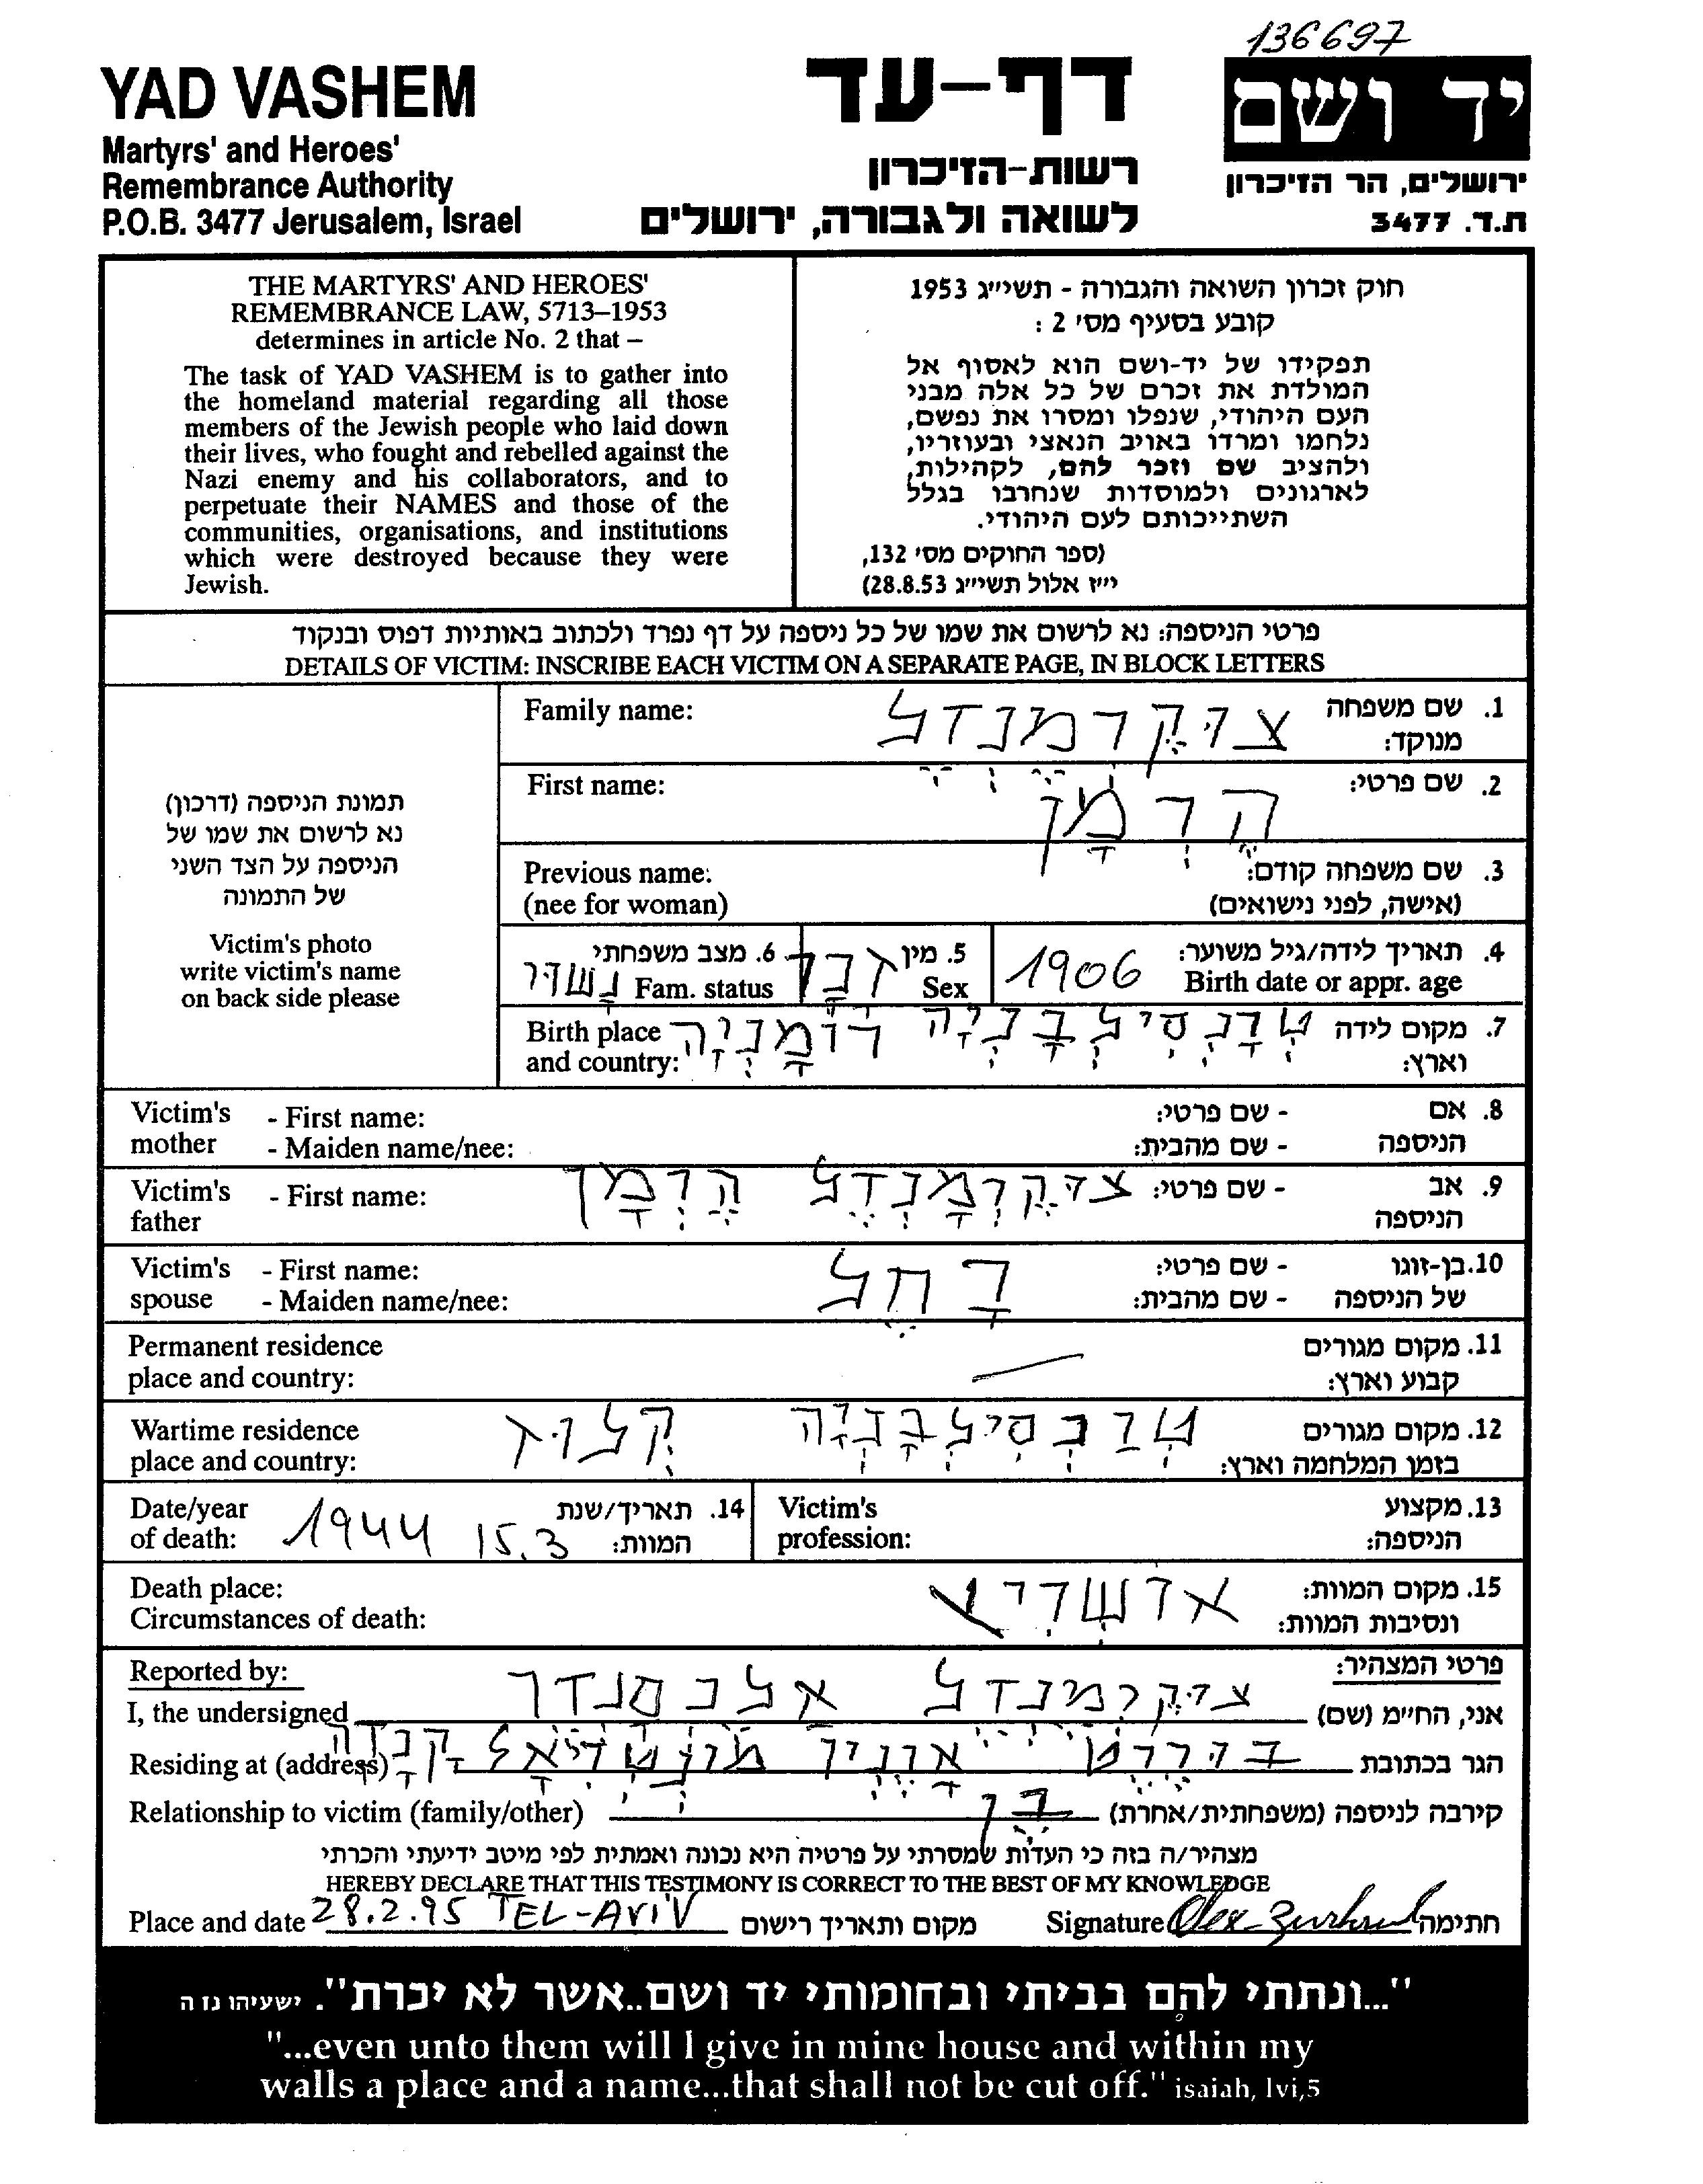 136697
YAD VASHEM
Martyrs' and Heroes'
Remembrance Authority
P.O.B. 3477 Jerusalem, Israel
דף-עד
רשות-הזיכרון
לשואה ולגבורה, ירושלים
יד ושם
ירושלים, הר הזיכרון
ת.ד. 3477
THE MARTYRS' AND HEROES'
REMEMBRANCE LAW, 5713–1953
determines in article No. 2 that –
The task of YAD VASHEM is to gather into
the homeland material regarding all those
members of the Jewish people who laid down
their lives, who fought and rebelled against the
Nazi enemy and his collaborators, and to
perpetuate their NAMES and those of the
communities, organisations, and institutions
which were destroyed because they were
Jewish.
חוק זכרון השואה והגבורה - תשי״ג 1953
קובע בסעיף מס׳ 2 :
תפקידו של יד-ושם הוא לאסוף אל
המולדת את זכרם של כל אלה מבני
העם היהודי, שנפלו ומסרו את נפשם,
נלחמו ומרדו באויב הנאצי ובעוזריו,
ולהציב שם וזכר להם, לקהילות,
לארגונים ולמוסדות שנחרבו בגלל
השתייכותם לעם היהודי.
(ספר החוקים מס׳ 132,
י״ז אלול תשי״ג 28.8.53)
פרטי הניספה: נא לרשום את שמו של כל ניספה על דף נפרד ולכתוב באותיות דפוס ובנקוד
DETAILS OF VICTIM: INSCRIBE EACH VICTIM ON A SEPARATE PAGE, IN BLOCK LETTERS
תמונת הניספה (דרכון)
נא לרשום את שמו של
הניספה על הצד השני
של התמונה
Victim's photo
write victim's name
on back side please
1. שם משפחה צוקרמנדל Family name:
מנוקד:
2. שם פרטי: הרמן First name:
3. שם משפחה קודם: Previous name:
(אישה, לפני נישואים) (nee for woman)
4. תאריך לידה/גיל משוער: 1906
Birth date or appr. age
5. מין זכר
Sex
6. מצב משפחתי נשוי
Fam. status
7. מקום לידה טרנסילבניה רומניה Birth place
וארץ: and country:
8. אם - שם פרטי: Victim's - First name:
הניספה - שם מהבית: mother - Maiden name/nee:
9. אב - שם פרטי: צוקרמנדל הרמן Victim's - First name:
הניספה father
10. בן-זוגו - שם פרטי: רחל Victim's - First name:
של הניספה - שם מהבית: spouse - Maiden name/nee:
11. מקום מגורים Permanent residence
קבוע וארץ: — place and country:
12. מקום מגורים טרנסילבניה קלוז Wartime residence
בזמן המלחמה וארץ: place and country:
13. מקצוע Victim's
הניספה: profession:
14. תאריך/שנת Date/year
המוות: 15.3 1944 of death:
15. מקום המוות: אושויץ Death place:
ונסיבות המוות: Circumstances of death:
פרטי המצהיר: Reported by:
אני, הח״מ (שם) צוקרמנדל אלכסנדר I, the undersigned
הגר בכתובת מונטריאל קנדה Residing at (address)
קירבה לניספה (משפחתית/אחרת) בן Relationship to victim (family/other)
מצהיר/ה בזה כי העדות שמסרתי על פרטיה היא נכונה ואמתית לפי מיטב ידיעתי והכרתי
HEREBY DECLARE THAT THIS TESTIMONY IS CORRECT TO THE BEST OF MY KNOWLEDGE
Place and date 28.2.95 TEL-AVIV מקום ותאריך רישום Signature חתימה
"...ונתתי להם בביתי ובחומותי יד ושם..אשר לא יכרת". ישעיהו נו ה
"...even unto them will I give in mine house and within my
walls a place and a name...that shall not be cut off." isaiah, lvi,5